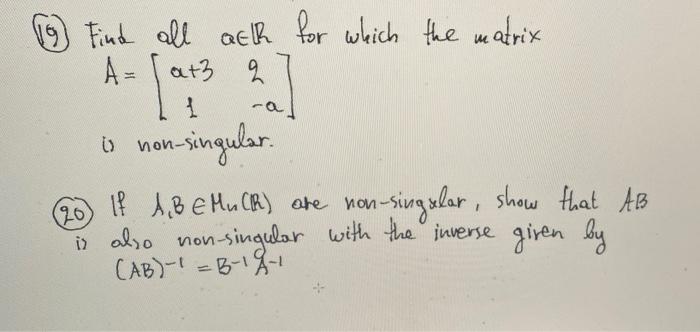 (19) Find all a∈ℝ for which the matrix
A = [ a+3 2
1 -a ]
is non-singular.
(20) If A,B ∈ Mn(ℝ) are non-singular, show that AB
is also non-singular with the inverse given by
(AB)⁻¹ = B⁻¹A⁻¹